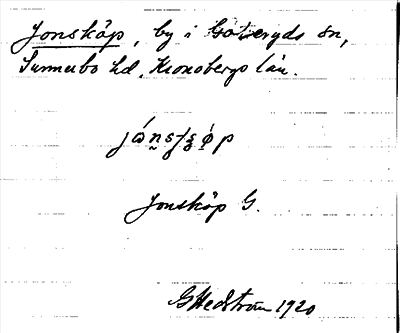 Jonsköp, by i Göteryds sn,
Sunnerbo hd. Kronobergs län.
Jonsköp G.
G Hedström 1920